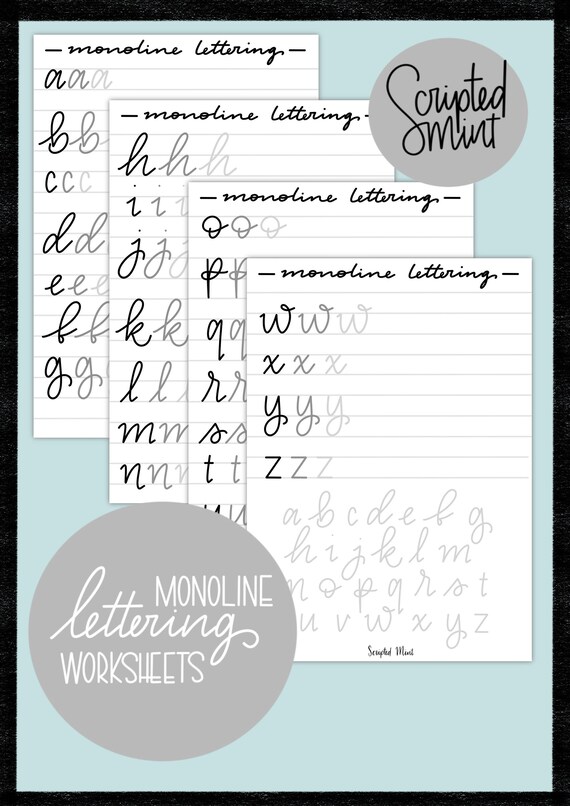 — monoline lettering —
a a a
b b
c c c
d d
e e e
f f
g g
— monoline lettering —
h h h
i i i
j j j
k k
l l l
m m
n n n
— monoline lettering —
o o o
p p
q q
r r
s s
t t
u u
— monoline lettering —
w w w
x x x
y y y
z z z
a b c d e f g
h i j k l m
n o p q r s t
u v w x y z
Scripted Mint
Scripted
Mint
MONOLINE
lettering
WORKSHEETS